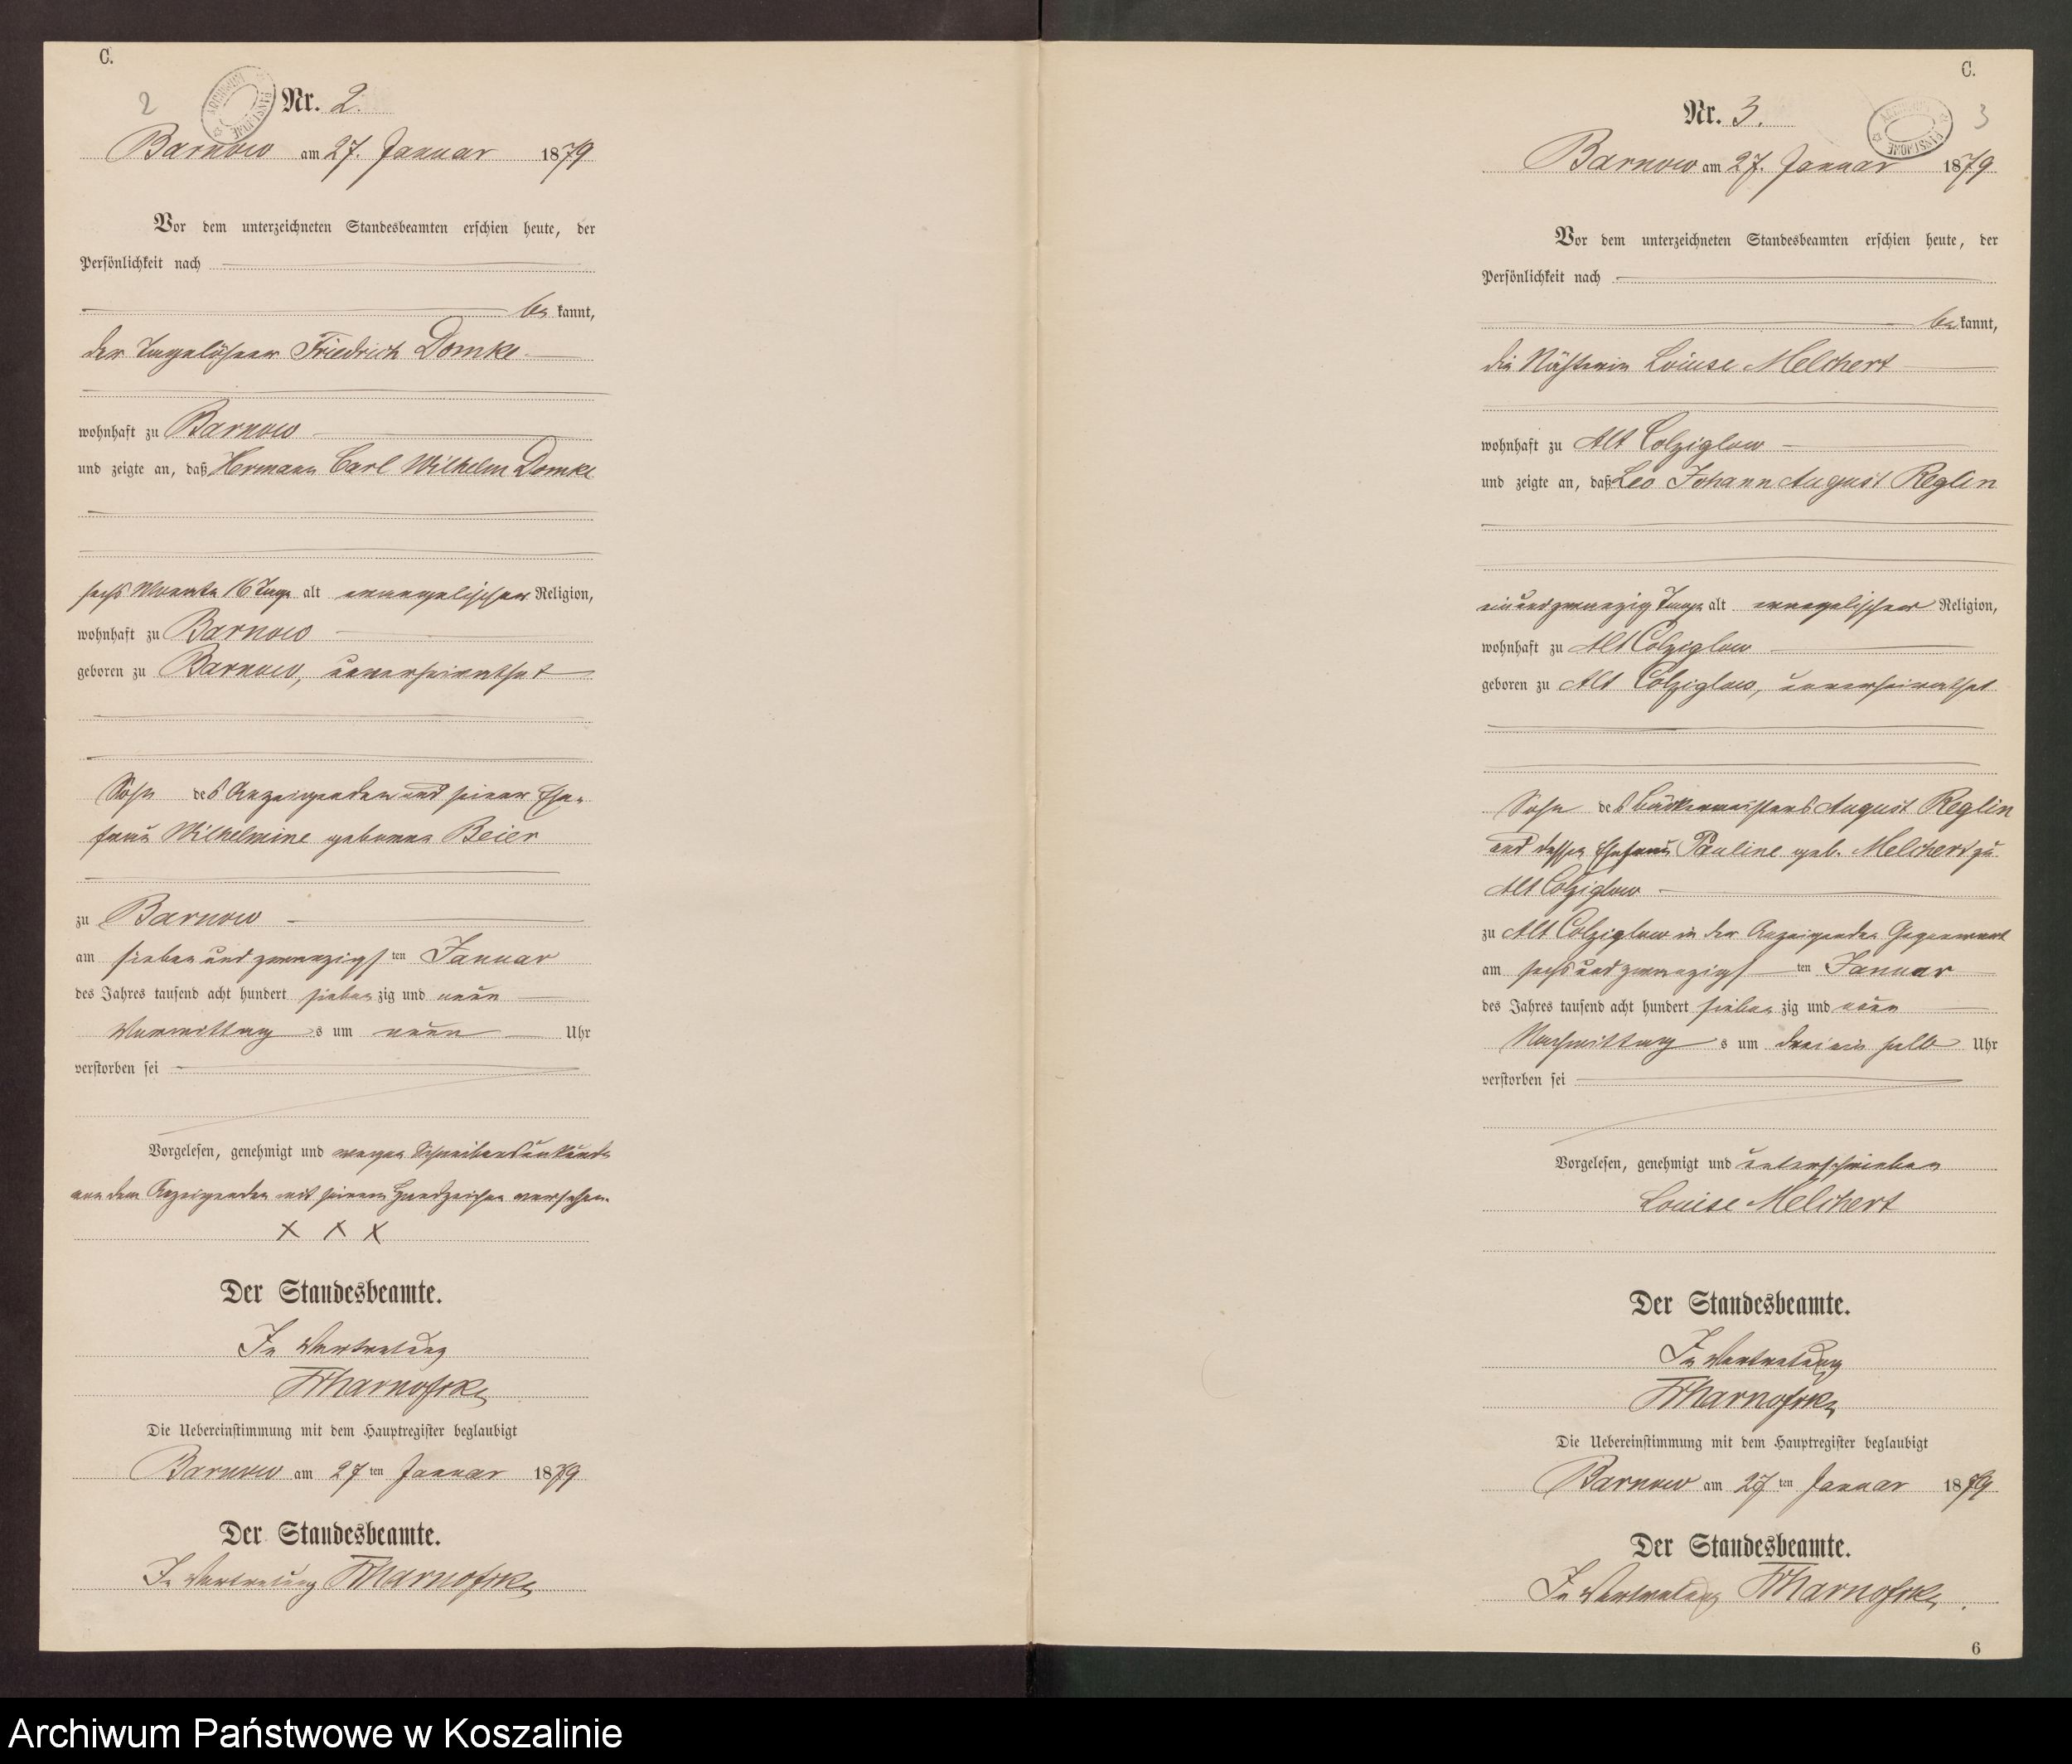 C.
2
Nr. 2.
Barnow am 27. Januar 1879
Vor dem unterzeichneten Standesbeamten erschien heute, der
Persönlichkeit nach
be kannt,
der Tagelöhner Friedrich Domke
wohnhaft zu Barnow
und zeigte an, daß Hermann Carl Wilhelm Domke
sechs Monate 16 Tage alt evangelischer Religion,
wohnhaft zu Barnow
geboren zu Barnow, unverheirathet
Sohn des Anzeigenden und seiner Ehe-
frau Wilhelmine geborene Beier
zu Barnow
am sieben und zwanzigsten Januar
des Jahres tausend acht hundert siebenzig und neun
Vormittags um neun Uhr
verstorben sei
Vorgelesen, genehmigt und wegen Schreibensunkunde
von dem Anzeigenden mit seinem Handzeichen versehen.
X X X
Der Standesbeamte.
In Vertretung
Die Uebereinstimmung mit dem Hauptregister beglaubigt
Barnow am 27ten Januar 1879
Der Standesbeamte.
In Vertretung
C.
3
Nr. 3.
Barnow am 27. Januar 1879
Vor dem unterzeichneten Standesbeamten erschien heute, der
Persönlichkeit nach
be kannt,
die Nähterin Louise Melchert
wohnhaft zu Alt Colziglow
und zeigte an, daß Leo Johann August Reglin
einundzwanzig Tage alt evangelischer Religion,
wohnhaft zu Alt Colziglow
geboren zu Alt Colziglow, unverheirathet
Sohn des Bäckermeisters August Reglin
und dessen Ehefrau Pauline geb. Melchert zu
Alt Colziglow
zu Alt Colziglow in der Anzeigenden Gegenwart
am sechsundzwanzigsten Januar
des Jahres tausend acht hundert siebenzig und neun
Nachmittags um drei ein halb Uhr
verstorben sei
Vorgelesen, genehmigt und unterschrieben
Louise Melchert
Der Standesbeamte.
In Vertretung
Die Uebereinstimmung mit dem Hauptregister beglaubigt
Barnow am 27ten Januar 1879
Der Standesbeamte.
In Vertretung
6
Archiwum Państwowe w Koszalinie